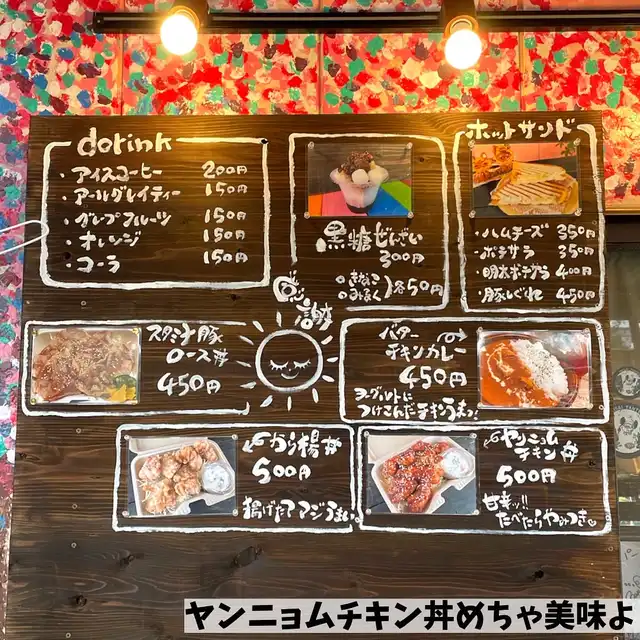 dorink
・アイスコーヒー 200円
・アールグレイティー 150円
・グレープフルーツ 150円
・オレンジ 150円
・コーラ 150円
黒糖ぜんざい
300円
・きなこ
・みるく
各50円
ホットサンド
・ハムチーズ 350円
・ポテサラ 350円
・明太ポテサラ 400円
・豚しぐれ 450円
スタミナ豚
ロース丼
450円
バター
チキンカレー
450円
ヨーグルトに
つけこんだチキンうまっ!
から揚丼
500円
揚げたてマジうまい
ヤンニョム
チキン丼
500円
甘辛ッ!!
たべたらやみつき
ヤンニョムチキン丼めちゃ美味よ